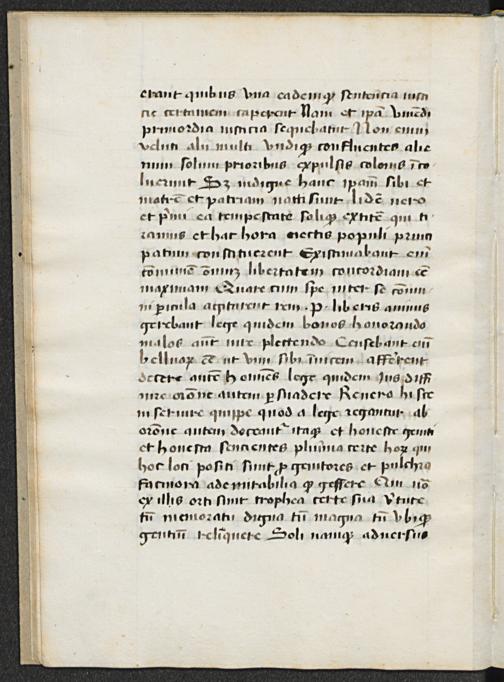 erant quibus vna eademq; sententia iusti
cie certamen caperent Nam et ipā viuēdi
primordia iusticia sequebatur Non enim
veluti alii multi vndiq; confluentes alie
num solum prioribus expulsis colonis īco
luerunt Sꝫ indigne hanc ipam̄ sibi et
matrē et patriam nacti sunt Iidē vero
et pͥmi ea tempestate soliq; extitē qui ti
rannis et hac hora eiectis populi princi
patum constituerent Existimabant eīͥ
cōmunē omniꝫ libertatem concordiam cē
maximam Quare cum spe inter se cōmu
ni pericula agiturent rem. P liberis animis
gerebant lege quidem bonos honorando
malos aūt iure plectendo Censebant eīͥ
belluarꝫ cē ut vim sibi īuicem afferrent
decere autē hoīnes lege quidem ius diffi
nire orōne autem ꝑsuadere Reuera his ce
ni seruire quippe quod a lege regantur ab
orōne autem doceant᷑ itaq; et honeste geniti
et honesta sentientes plurima certe horꝫ qui
hoc loci positi sunt ꝓgenitores et pulchra
facinora ademirabilia qꝫ gessere Qui nō
ex illis orti sunt trophea certe sua v̓tute
tū memoratu digna tū magna tū vbiq;
gentiū reliquere Soli namq; aduersus